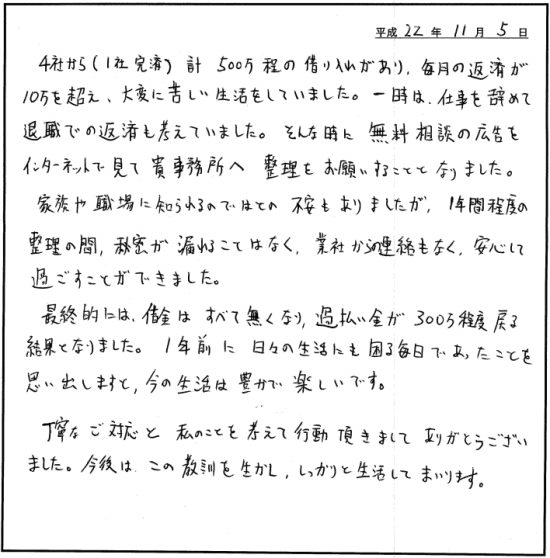 平成 22 年 11 月 5 日
4社から(1社完済)計 500万程の借り入れがあり、毎月の返済が
10万を超え、大変に苦しい生活をしていました。一時は、仕事を辞めて
退職での返済も考えていました。そんな時に無料相談の広告を
インターネットで見て貴事務所へ 整理をお願いすることとなりました。
家族や職場に知られるのではとの不安もありましたが、1年間程度の
整理の間、秘密が漏れることはなく、業社からの連絡もなく、安心して
過ごすことができました。
最終的には、借金はすべて無くなり、過払い金が300万程度戻る
結果となりました。1年前に日々の生活にも困る毎日であったことを
思い出しますと、今の生活は豊かで楽しいです。
丁寧なご対応と私のことを考えて行動頂きましてありがとうござい
ました。今後は、この教訓を生かし、しっかりと生活してまいります。